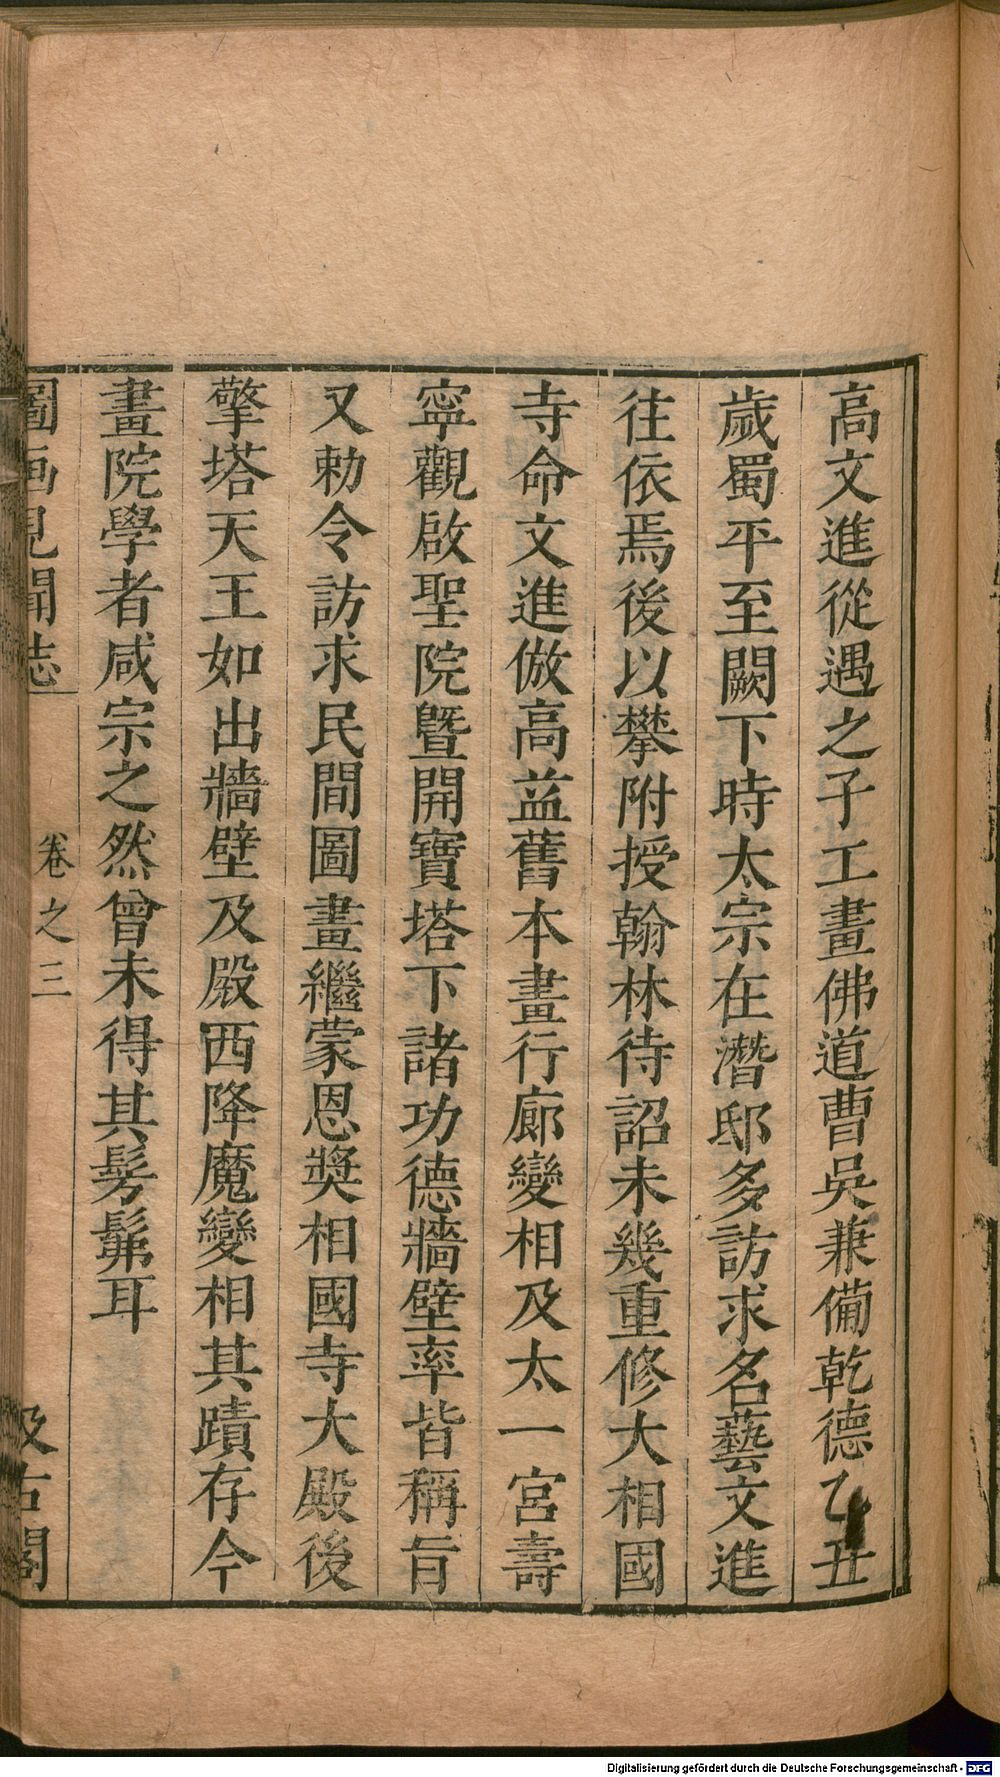 高文進從遇之子工畫佛道曹吳兼備乾德乙丑
歲蜀平至闕下時太宗在潛邸多訪求名藝文進
往依焉後以攀附授翰林待詔未幾重修大相國
寺命文進倣高益舊本畫行廊變相及太一宮壽
寧觀啟聖院暨開寶塔下諸功德牆壁率皆稱旨
又勅令訪求民間圖畫繼蒙恩獎相國寺大殿後
擎塔天王如出牆壁及殿西降魔變相其蹟存今
畫院學者咸宗之然曾未得其髣髴耳
圖畫見聞志 卷之三 汲古閣
Digitalisierung gefördert durch die Deutsche Forschungsgemeinschaft - DFG